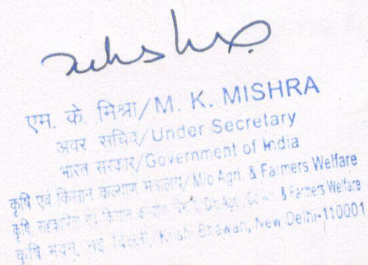 एम. के. मिश्रा/M. K. MISHRA
अवर सचिव/Under Secretary
भारत सरकार/Government of India
कृषि एवं किसान कल्याण मंत्रालय/M/o Agri. & Farmers Welfare
कृषि सहकारिता एवं किसान कल्याण & Farmers Welfare
कृषि भवन, नई दिल्ली/Krishi Bhawan, New Delhi-110001